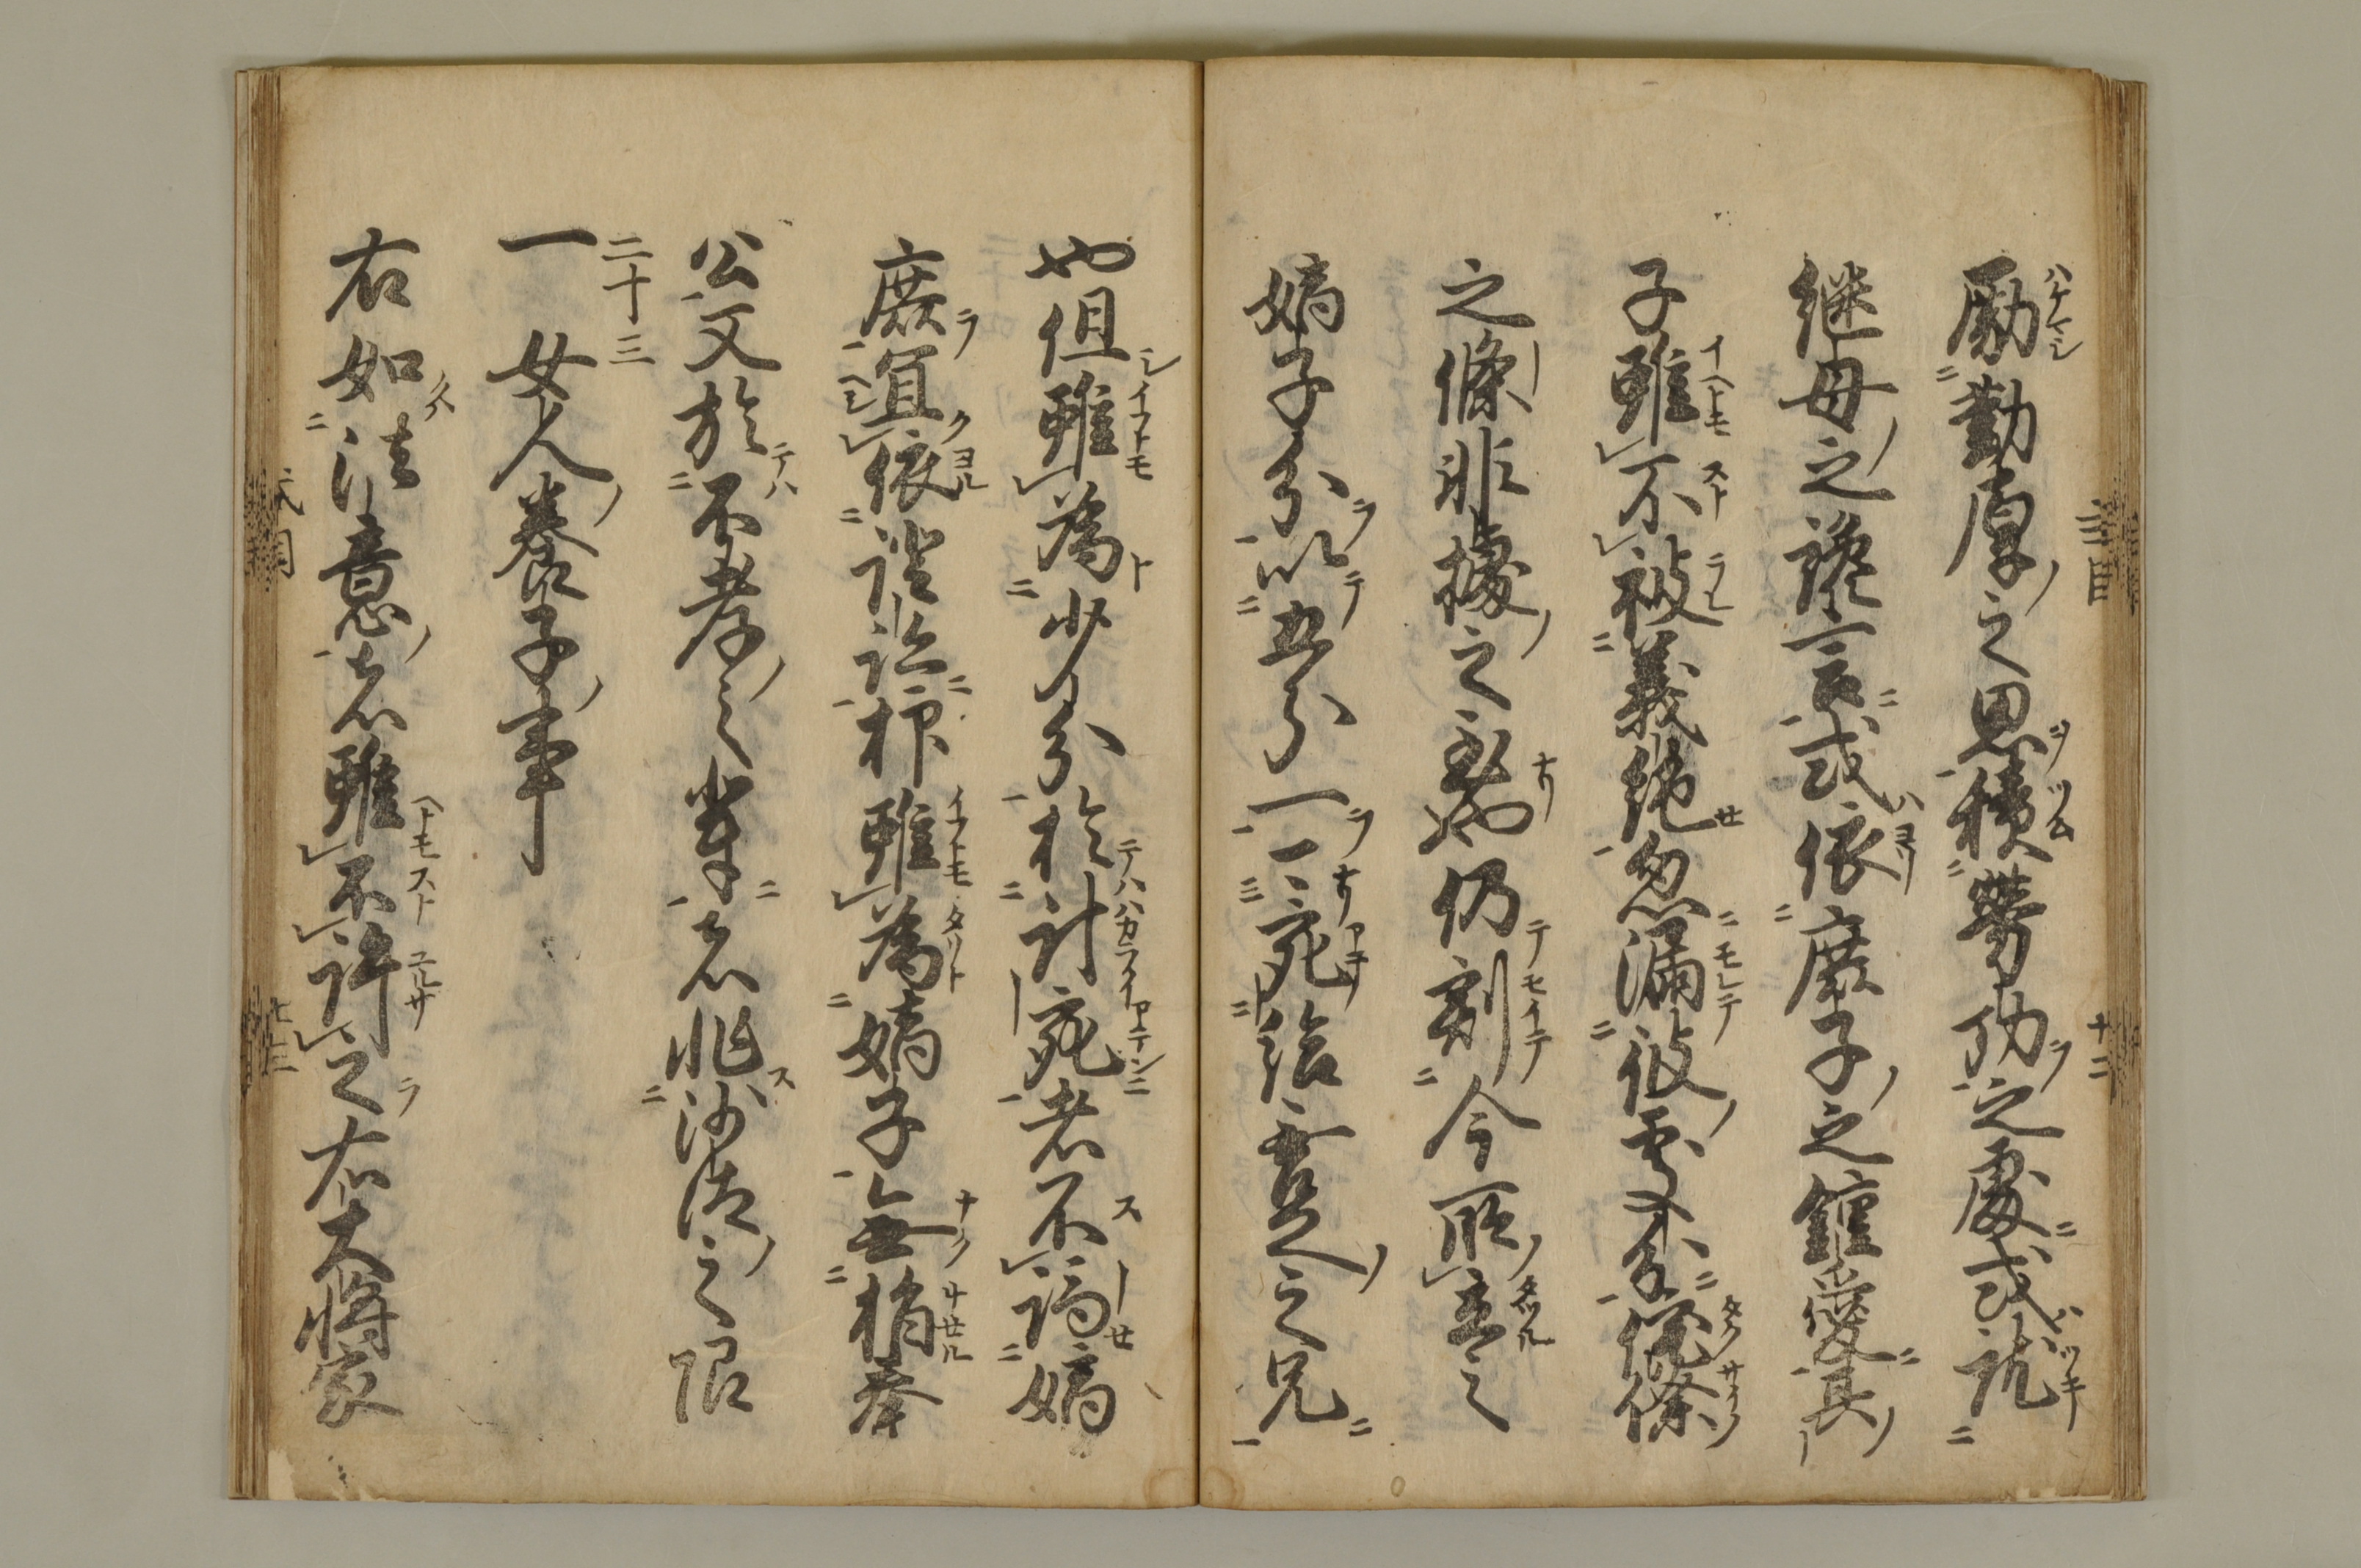 励勤厚之思積労功之處或就
継母之讒言或依庶子之鐘愛其
子雖不被義絶忽漏彼處分侘傺
之條非據之至也仍割今所立之
嫡子分以五分一可充給無足之兄
也但雖為少分於計宛者不謂嫡
庶宜依證跡抑雖為嫡子無指奉
公又於不孝之輩者非沙汰之限
二十三
一 女人養子事
右如法意者雖不許之右大将家